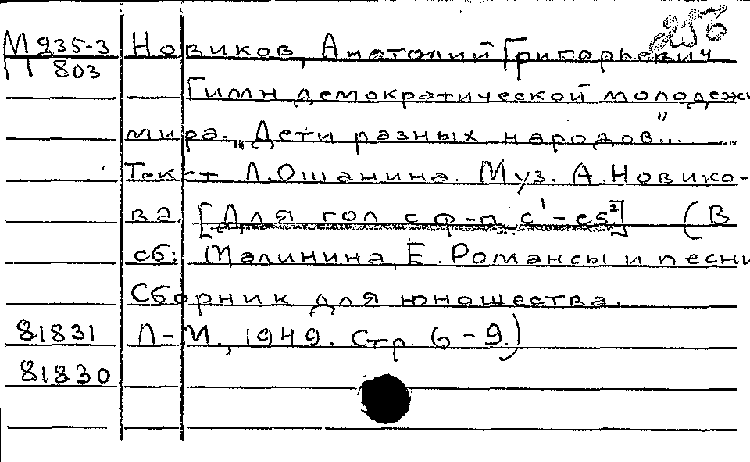 256
М 235-3 Новиков, Анатолий Григорьевич
П 803
Гимн демократической молодежи
мира. „Дети разных народов"...
Текст Л. Ошанина. Муз. А. Новико-
ва. [Для гол с ф-п. c¹-es²] (В
сб: Малинина, Е. Романсы и песни
Сборник для юношества.
81831 Л-М., 1949. Стр 6-9.)
81830